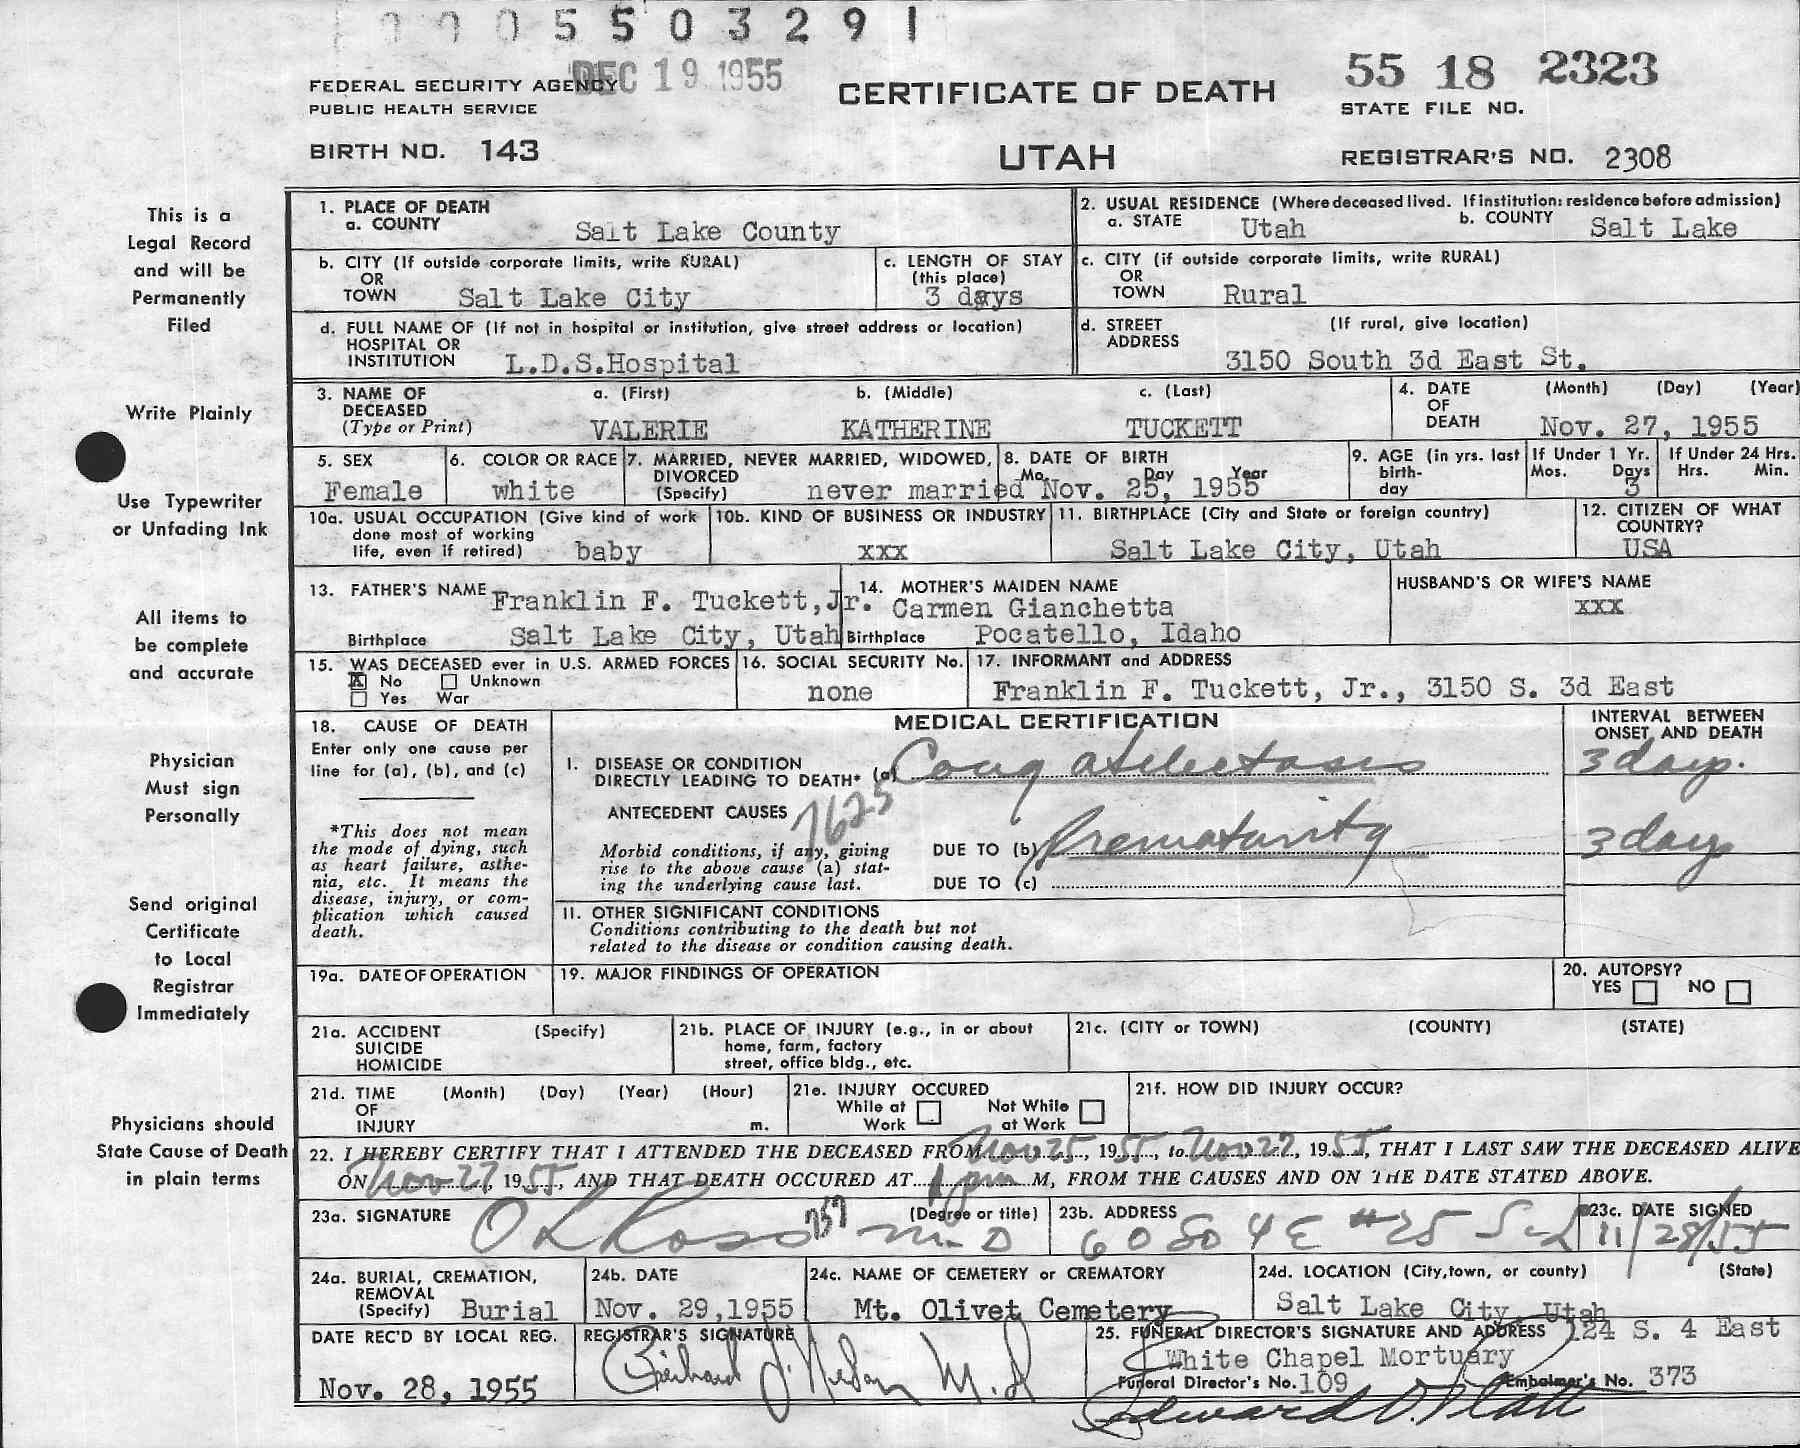 0005503291
DEC 19 1955
55 18 2323
FEDERAL SECURITY AGENCY
PUBLIC HEALTH SERVICE
CERTIFICATE OF DEATH
STATE FILE NO.
BIRTH NO. 143
UTAH
REGISTRAR'S NO. 2308
This is a
Legal Record
and will be
Permanently
Filed
Write Plainly
Use Typewriter
or Unfading Ink
All items to
be complete
and accurate
Physician
Must sign
Personally
Send original
Certificate
to Local
Registrar
Immediately
Physicians should
State Cause of Death
in plain terms
1. PLACE OF DEATH
a. COUNTY Salt Lake County
2. USUAL RESIDENCE (Where deceased lived. If institution: residence before admission)
a. STATE Utah b. COUNTY Salt Lake
b. CITY (If outside corporate limits, write RURAL)
OR
TOWN Salt Lake City
c. LENGTH OF STAY
(this place)
3 days
c. CITY (if outside corporate limits, write RURAL)
OR
TOWN Rural
d. FULL NAME OF (If not in hospital or institution, give street address or location)
HOSPITAL OR
INSTITUTION L.D.S.Hospital
d. STREET (If rural, give location)
ADDRESS
3150 South 3d East St.
3. NAME OF a. (First) b. (Middle) c. (Last)
DECEASED
(Type or Print) VALERIE KATHERINE TUCKETT
4. DATE (Month) (Day) (Year)
OF
DEATH Nov. 27, 1955
5. SEX
Female
6. COLOR OR RACE
white
7. MARRIED, NEVER MARRIED, WIDOWED,
DIVORCED
(Specify) never married
8. DATE OF BIRTH
Mo. Day Year
Nov. 25, 1955
9. AGE (in yrs. last
birth-
day
If Under 1 Yr.
Mos. Days
3
If Under 24 Hrs.
Hrs. Min.
10a. USUAL OCCUPATION (Give kind of work
done most of working
life, even if retired) baby
10b. KIND OF BUSINESS OR INDUSTRY
xxx
11. BIRTHPLACE (City and State or foreign country)
Salt Lake City, Utah
12. CITIZEN OF WHAT
COUNTRY?
USA
13. FATHER'S NAME Franklin F. Tuckett, Jr.
Birthplace Salt Lake City, Utah
14. MOTHER'S MAIDEN NAME
Carmen Gianchetta
Birthplace Pocatello, Idaho
HUSBAND'S OR WIFE'S NAME
xxx
15. WAS DECEASED ever in U.S. ARMED FORCES
X No Unknown
Yes War
16. SOCIAL SECURITY No.
none
17. INFORMANT and ADDRESS
Franklin F. Tuckett, Jr., 3150 S. 3d East
18. CAUSE OF DEATH
Enter only one cause per
line for (a), (b), and (c)
*This does not mean
the mode of dying, such
as heart failure, asthe-
nia, etc. It means the
disease, injury, or com-
plication which caused
death.
MEDICAL CERTIFICATION
INTERVAL BETWEEN
ONSET AND DEATH
I. DISEASE OR CONDITION
DIRECTLY LEADING TO DEATH* (a) Cong atelectasis 3 days.
ANTECEDENT CAUSES 7625
Morbid conditions, if any, giving
rise to the above cause (a) stat-
ing the underlying cause last.
DUE TO (b) Prematurity 3 days
DUE TO (c)
II. OTHER SIGNIFICANT CONDITIONS
Conditions contributing to the death but not
related to the disease or condition causing death.
19a. DATE OF OPERATION
19. MAJOR FINDINGS OF OPERATION
20. AUTOPSY?
YES NO
21a. ACCIDENT (Specify)
SUICIDE
HOMICIDE
21b. PLACE OF INJURY (e.g., in or about
home, farm, factory
street, office bldg., etc.
21c. (CITY or TOWN) (COUNTY) (STATE)
21d. TIME (Month) (Day) (Year) (Hour)
OF
INJURY m.
21e. INJURY OCCURED
While at Work Not While at Work
21f. HOW DID INJURY OCCUR?
22. I HEREBY CERTIFY THAT I ATTENDED THE DECEASED FROM Nov 25, 1955, to Nov 27, 1955, THAT I LAST SAW THE DECEASED ALIVE
ON Nov 27, 1955, AND THAT DEATH OCCURED AT 1 pm M, FROM THE CAUSES AND ON THE DATE STATED ABOVE.
23a. SIGNATURE (Degree or title)
O L Ross 757 M.D
23b. ADDRESS
60 So 4 E #25
23c. DATE SIGNED
11/28/55
24a. BURIAL, CREMATION,
REMOVAL
(Specify) Burial
24b. DATE
Nov. 29,1955
24c. NAME OF CEMETERY or CREMATORY
Mt. Olivet Cemetery
24d. LOCATION (City,town, or county) (State)
Salt Lake City, Utah
DATE REC'D BY LOCAL REG.
Nov. 28, 1955
REGISTRAR'S SIGNATURE
25. FUNERAL DIRECTOR'S SIGNATURE AND ADDRESS 124 S. 4 East
White Chapel Mortuary
Funeral Director's No. 109 Embalmer's No. 373
Edward D. Platt